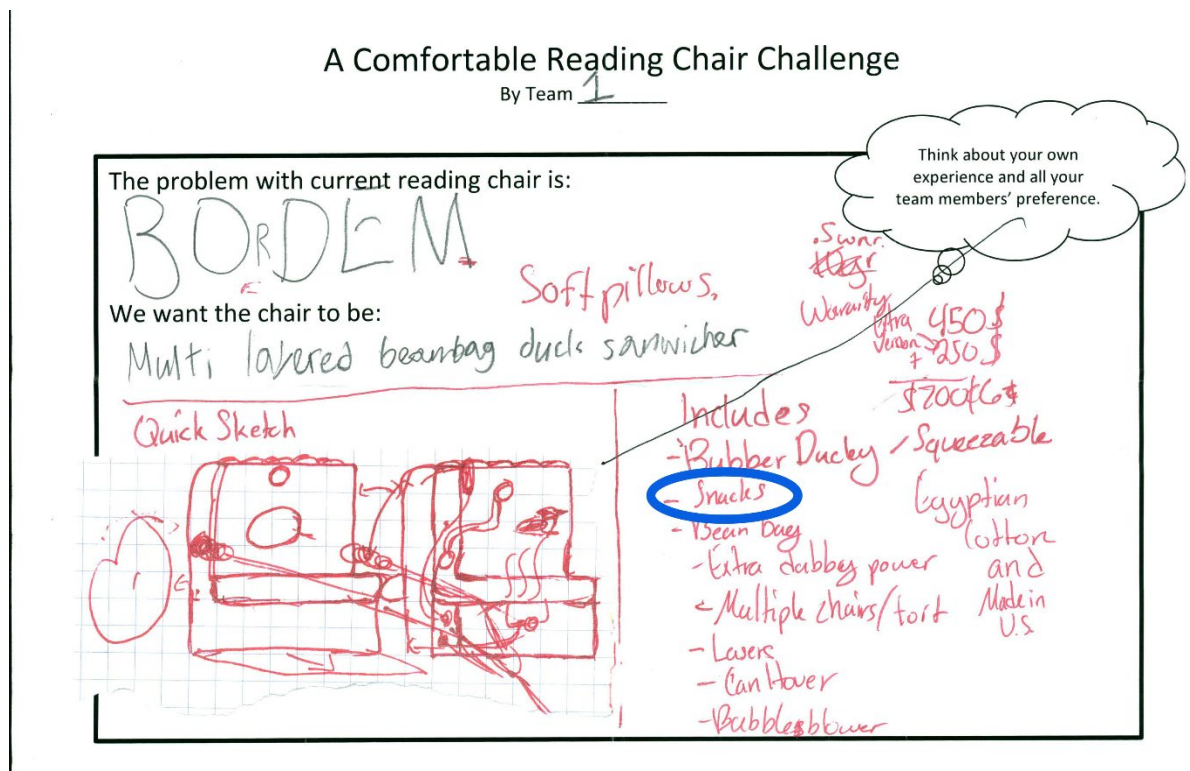 A Comfortable Reading Chair Challenge
By Team 1
Think about your own
experience and all your
team members' preference.
The problem with current reading chair is:
BORDEM
Soft pillows,
We want the chair to be:
Multi layered beanbag duck sanwicher
Warranty
Extra 450$
250$
Quick Sketch
Includes
- Rubber Ducky / Squeezable
- Snacks
- Bean bag
- Extra dabbey power
- Multiple chairs/fort
- Lasers
- Can Hover
- Bubblesblower
Egyptian
Cotton
and
Made in
U.S.